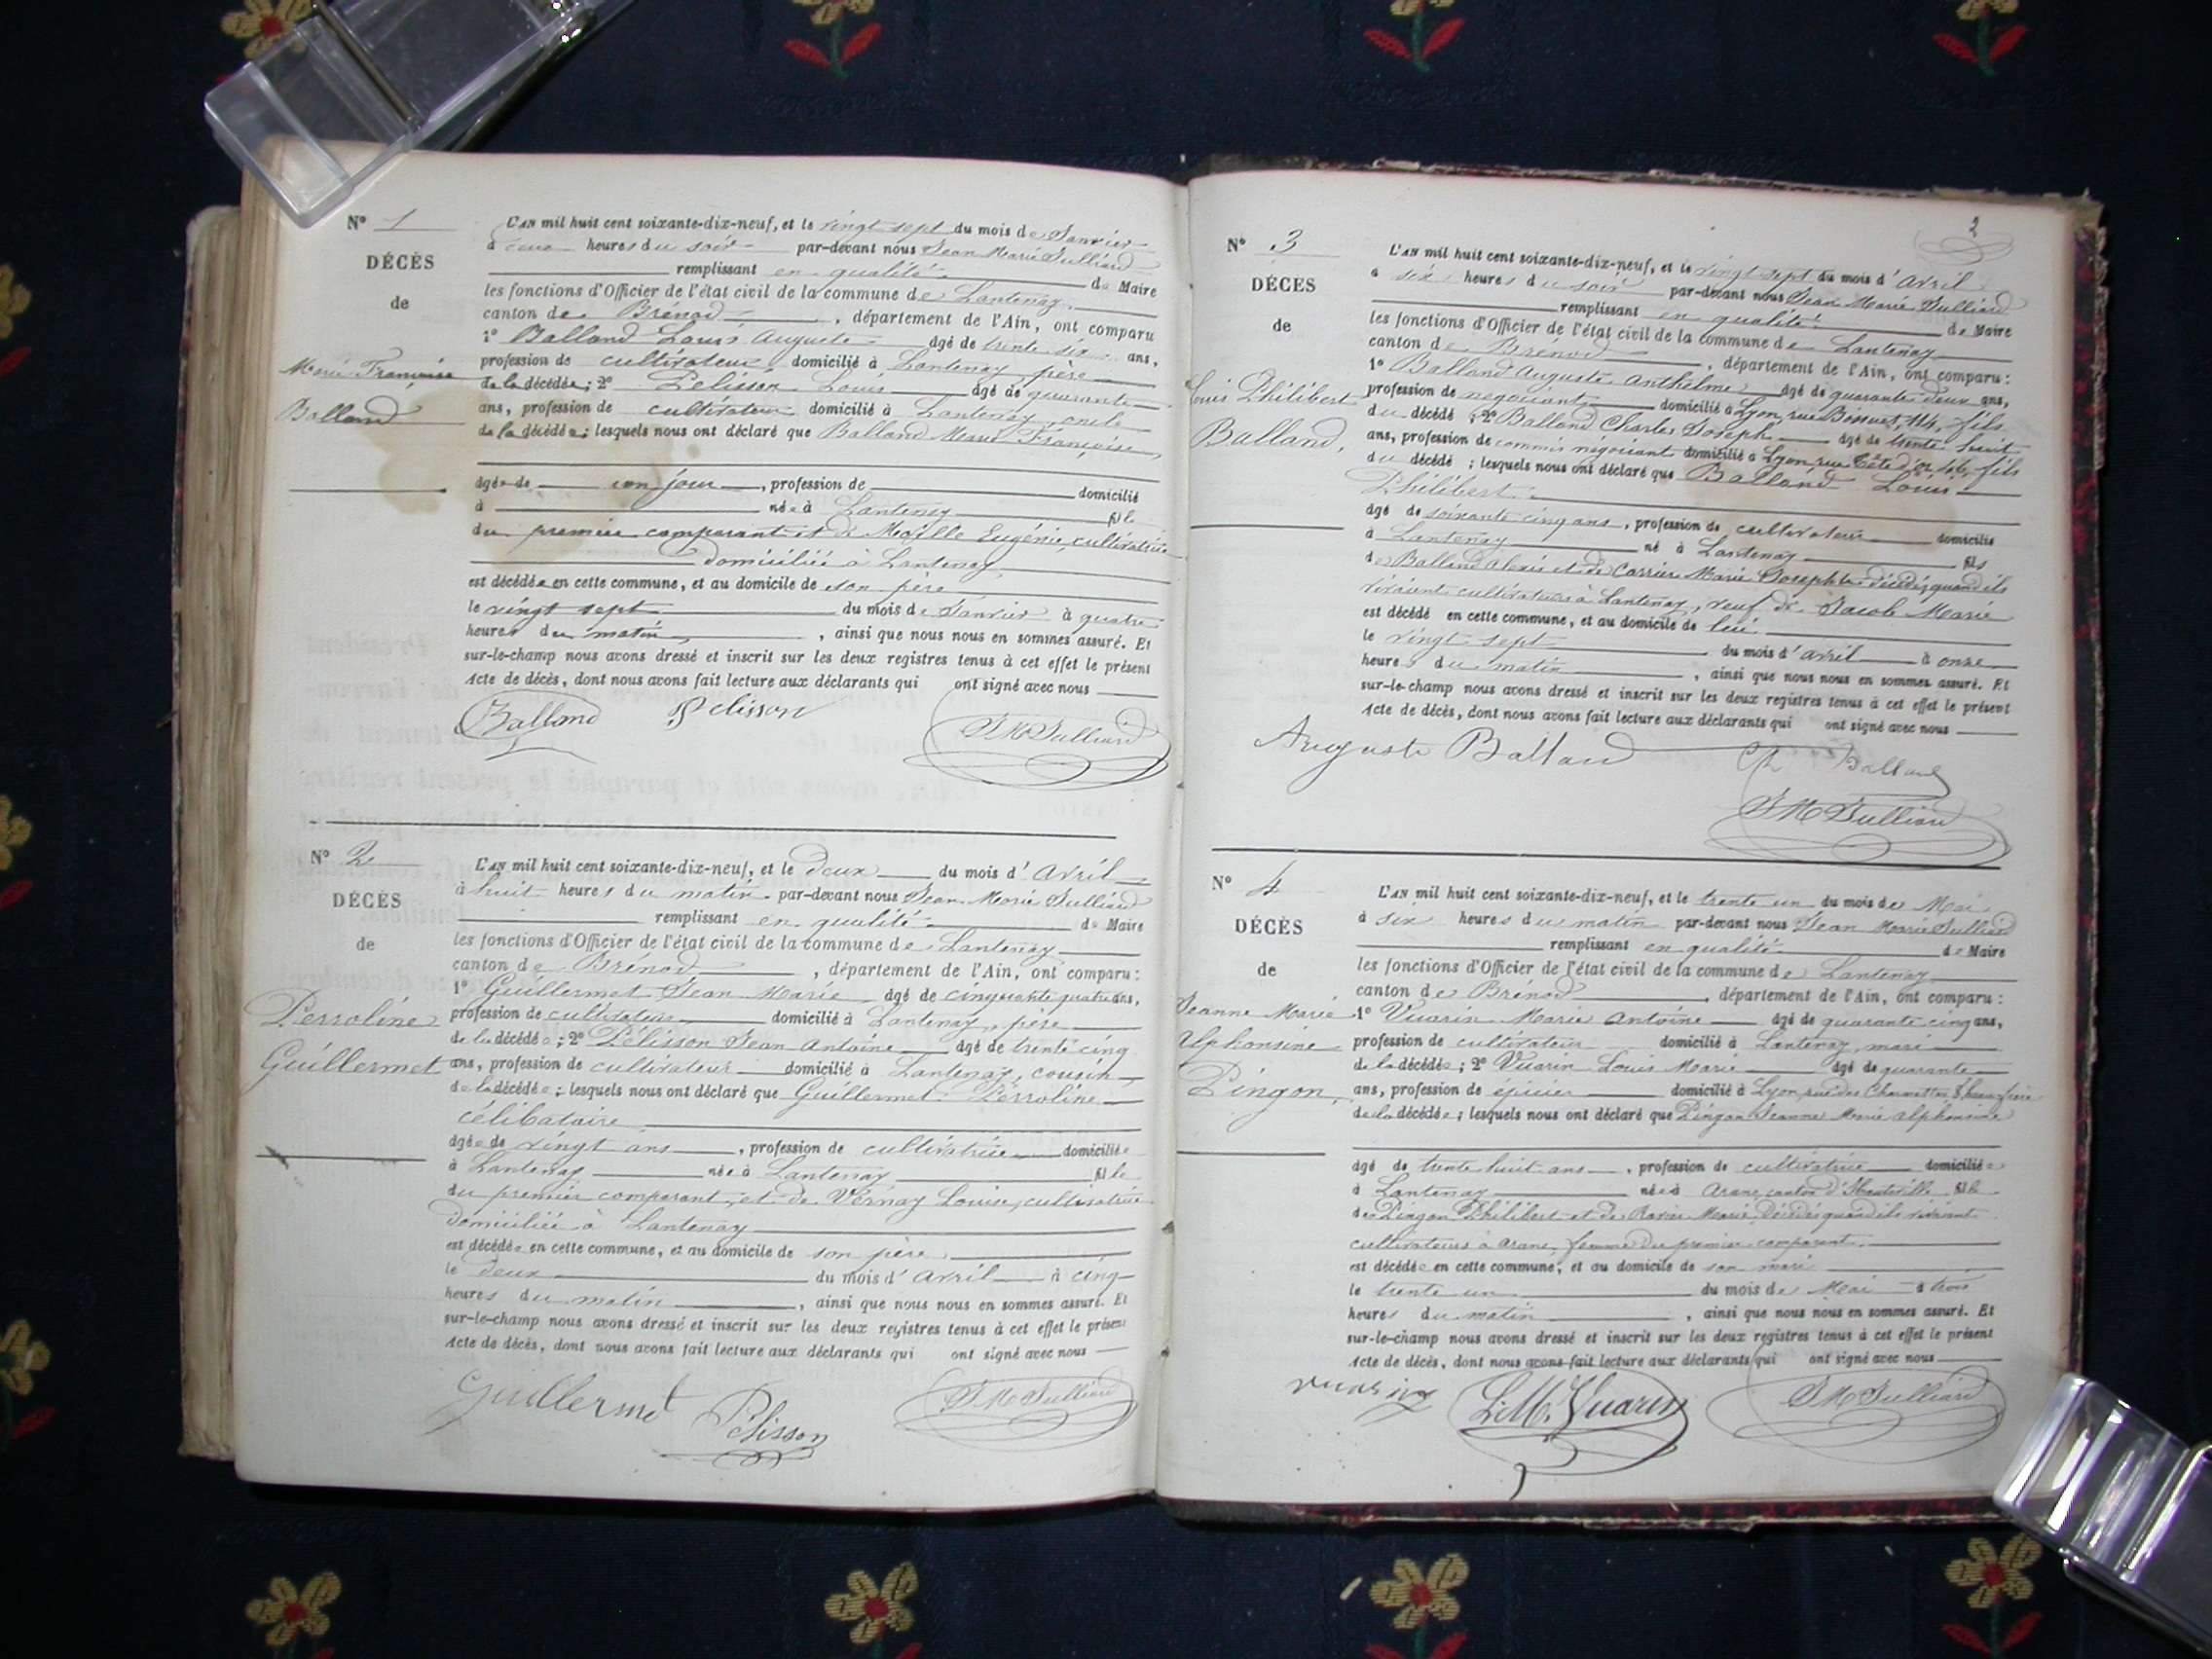 N° 1
DÉCÈS
de
Marie Françoise
Balland
L'AN mil huit cent soixante-dix-neuf, et le vingt sept du mois de Janvier
à deux heures du soir par-devant nous Jean Marie Julliard
remplissant en qualité de Maire
les fonctions d'Officier de l'état civil de la commune de Lantenay
canton de Brénod, département de l'Ain, ont comparu
1° Balland Louis Auguste âgé de trente six ans,
profession de cultivateur domicilié à Lantenay père
de la décédée; 2° Pelisson Louis âgé de quarante
ans, profession de cultivateur domicilié à Lantenay oncle
de la décédée; lesquels nous ont déclaré que Balland Marie Françoise,
âgée de un jour, profession de domicilié
à née à Lantenay fille
du premier comparant et de Eugénie, cultivatrice
domiciliée à Lantenay
est décédée en cette commune, et au domicile de son père
le vingt sept du mois de Janvier à quatre
heures du matin, ainsi que nous nous en sommes assuré. Et
sur-le-champ nous avons dressé et inscrit sur les deux registres tenus à cet effet le présent
Acte de décès, dont nous avons fait lecture aux déclarants qui ont signé avec nous
Balland Pelisson JM Julliard
N° 2
DÉCÈS
de
Perroline
Guillermet
L'AN mil huit cent soixante-dix-neuf, et le deux du mois d'Avril
à huit heures du matin par-devant nous Jean Marie Julliard
remplissant en qualité de Maire
les fonctions d'Officier de l'état civil de la commune de Lantenay
canton de Brénod, département de l'Ain, ont comparu:
1° Guillermet Jean Marie âgé de cinquante quatre ans,
profession de cultivateur domicilié à Lantenay, père
de la décédée; 2° Pélisson Jean Antoine âgé de trente cinq
ans, profession de cultivateur domicilié à Lantenay, cousin
de la décédée; lesquels nous ont déclaré que Guillermet Perroline
célibataire
âgée de vingt ans, profession de cultivatrice domiciliée
à Lantenay née à Lantenay fille
du premier comparant, et de Vernay Louise, cultivatrice
domiciliée à Lantenay
est décédée en cette commune, et au domicile de son père
le deux du mois d'avril à cinq
heures du matin, ainsi que nous nous en sommes assuré. Et
sur-le-champ nous avons dressé et inscrit sur les deux registres tenus à cet effet le présent
Acte de décès, dont nous avons fait lecture aux déclarants qui ont signé avec nous
Guillermet Pélisson JM Julliard
N° 3
DÉCÈS
de
Louis Philibert
Balland,
L'AN mil huit cent soixante-dix-neuf, et le vingt sept du mois d'avril
à six heures du soir par-devant nous Jean Marie Julliard
remplissant en qualité de Maire
les fonctions d'Officier de l'état civil de la commune de Lantenay
canton de Brénod, département de l'Ain, ont comparu:
1° Balland Auguste Anthelme âgé de quarante deux ans,
profession de négociant domicilié à Lyon, rue 114, fils
du décédé; 2° Balland Charles Joseph âgé de trente huit
ans, profession de commis négociant domicilié à Lyon, rue Tête d'or fils
du décédé; lesquels nous ont déclaré que Balland Louis
Philibert
âgé de soixante cinq ans, profession de cultivateur domicilié
à Lantenay né à Lantenay fils
de Balland Alexis et de Carrier Marie Josephte décédés quand ils
vivaient cultivateurs à Lantenay, veuf de Jacob Marie
est décédé en cette commune, et au domicile de lui
le vingt sept du mois d'avril à onze
heures du matin, ainsi que nous nous en sommes assuré. Et
sur-le-champ nous avons dressé et inscrit sur les deux registres tenus à cet effet le présent
Acte de décès, dont nous avons fait lecture aux déclarants qui ont signé avec nous
Auguste Balland Ch Balland
JM Julliard
N° 4
DÉCÈS
de
Jeanne Marie
Alphonsine
Pingon
L'AN mil huit cent soixante-dix-neuf, et le trente un du mois de Mai
à six heures du matin par-devant nous Jean Marie Julliard
remplissant en qualité de Maire
les fonctions d'Officier de l'état civil de la commune de Lantenay
canton de Brénod, département de l'Ain, ont comparu:
1° Vuarin Marie Antoine âgé de quarante cinq ans,
profession de cultivateur domicilié à Lantenay, mari
de la décédée; 2° Vuarin Louis Marie âgé de quarante
ans, profession de épicier domicilié à Lyon, rue des Charmettes beau frère
de la décédée; lesquels nous ont déclaré que Pingon Jeanne Marie Alphonsine
âgé de trente huit ans, profession de cultivatrice domiciliée
à Lantenay née à Arane, canton d'Hauteville fille
de Pingon Philibert et de Marie, décédés quand ils vivaient
cultivateurs à Arane, femme du premier comparant.
est décédée en cette commune, et au domicile de son mari
le trente un du mois de Mai à trois
heures du matin, ainsi que nous nous en sommes assuré. Et
sur-le-champ nous avons dressé et inscrit sur les deux registres tenus à cet effet le présent
Acte de décès, dont nous avons fait lecture aux déclarants qui ont signé avec nous
vuarin L.M. Vuarin JM Julliard